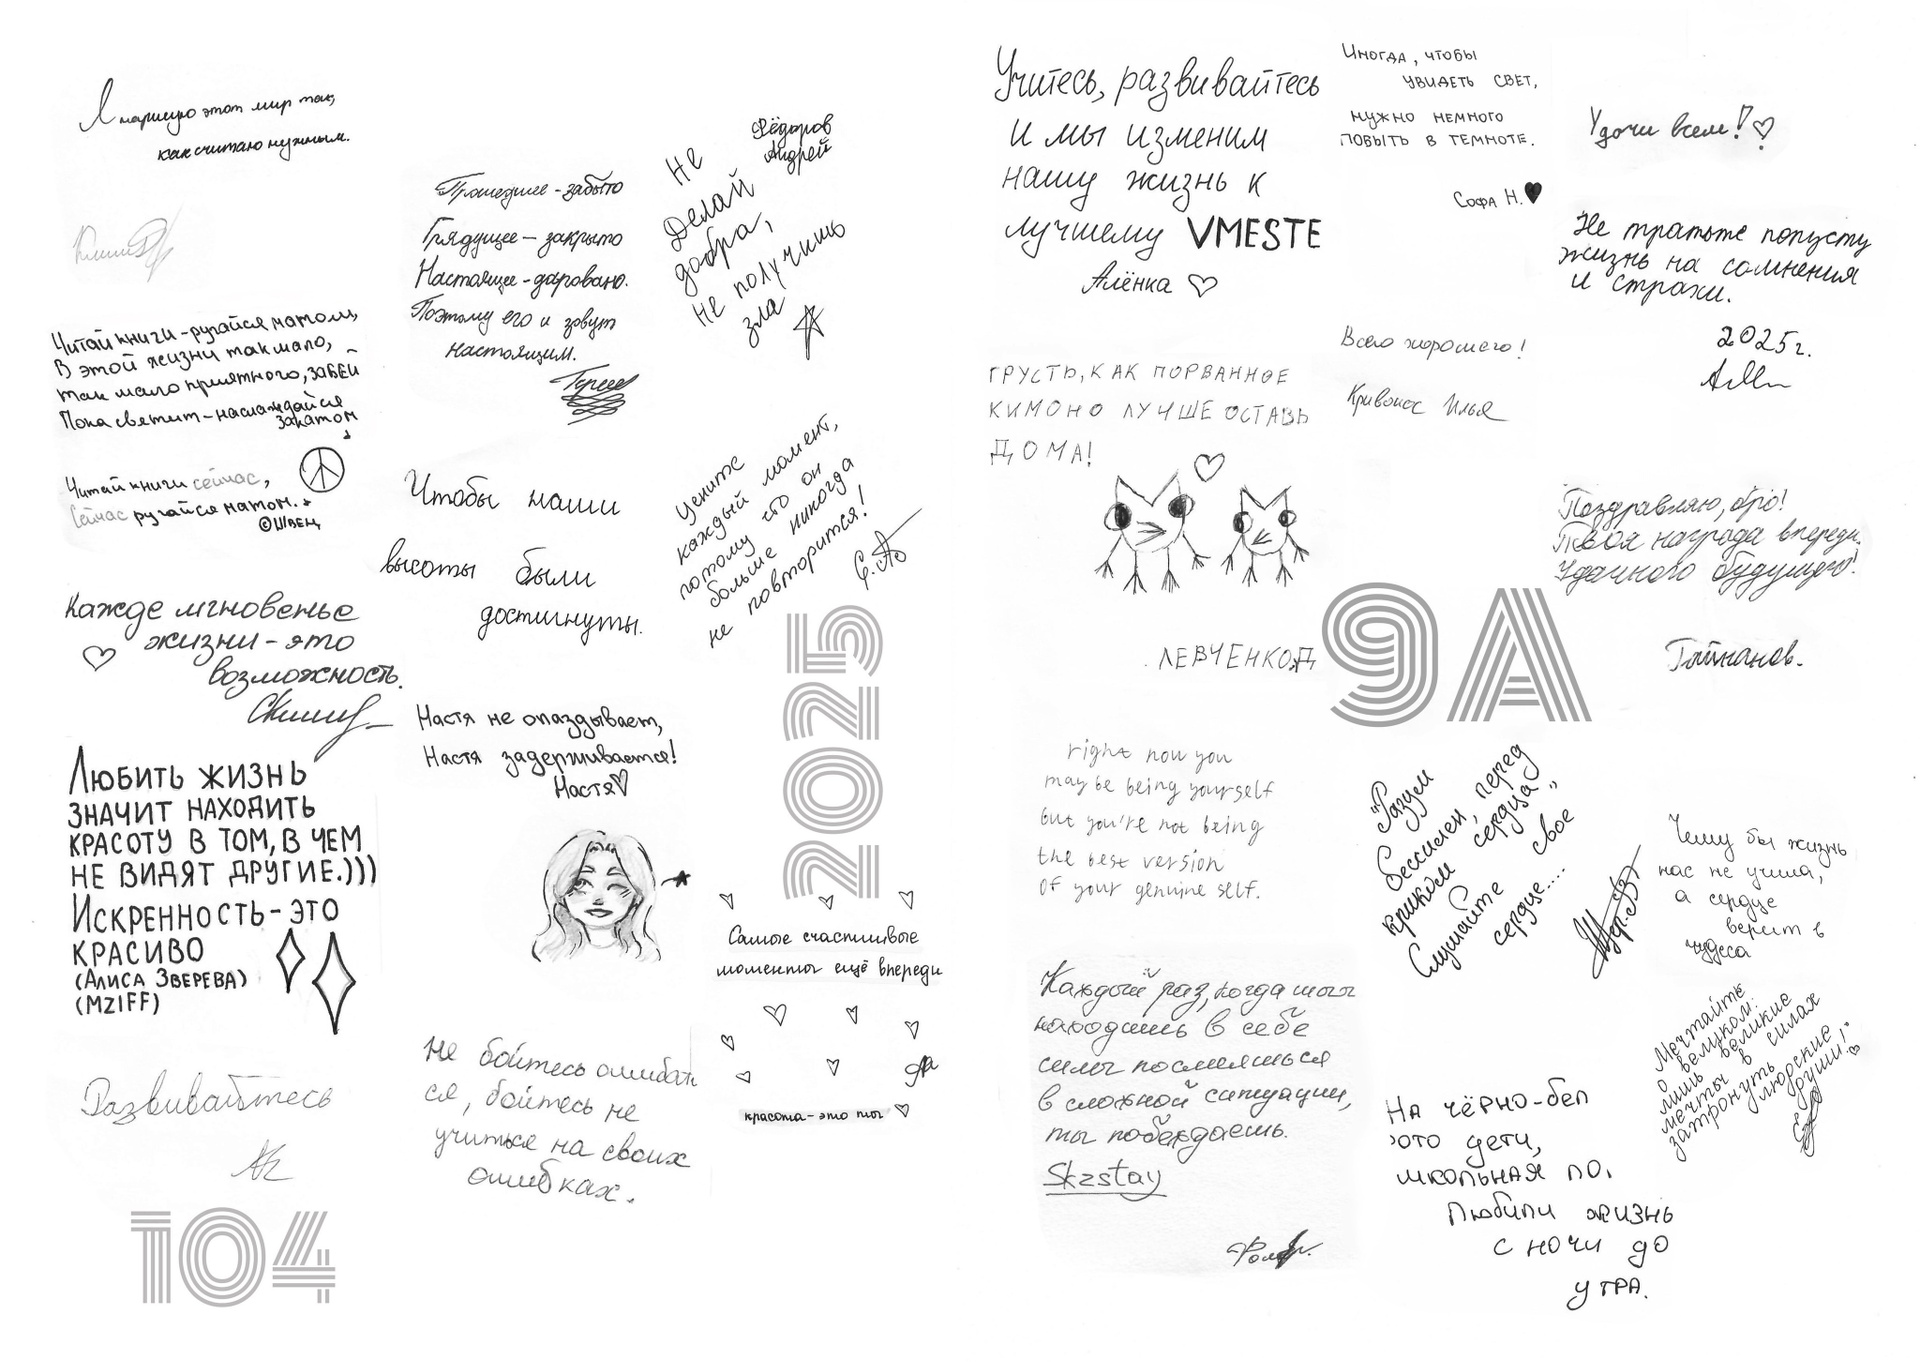 Я нарисую этот мир так,
как считаю нужным.
Читай книги - ругайся матом,
В этой жизни так мало,
так мало приятного, забей
Пока светит - наслаждайся
закатом
Читай книги сейчас,
Сейчас ругайся матом.
©ШВЕЦ
Кажде мгновенье
жизни - это
возможность.
Любить жизнь
значит находить
красоту в том, в чем
не видят другие.)))
Искренность - это
красиво
(Алиса Зверева)
(MZIFF)
Развивайтесь
104
Прошедшее - забыто
Грядущее - закрыто
Настоящее - даровано.
Поэтому его и зовут
настоящим.
Чтобы наши
высоты были
достигнуты.
Настя не опаздывает,
Настя задерживается!
Настя
Не бойтесь ошибать
ся, бойтесь не
учиться на своих
ошибках.
Фёдоров
Андрей
Не
Делай
добра,
не получишь
зла
Цените
каждый момент,
потому что он
больше никогда
не повторится!
2025
Самые счастливые
моменты ещё впереди
красота - это ты
Учитесь, развивайтесь
и мы изменим
нашу жизнь к
лучшему VMESTE
Алёнка
ГРУСТЬ, КАК ПОРВАННОЕ
КИМОНО ЛУЧШЕ ОСТАВЬ
ДОМА!
ЛЕВЧЕНКО.Д
right now you
may be being yourself
but you're not being
the best version
of your genuine self.
Каждый раз, когда ты
находишь в себе
силы посмеяться
в сложной ситуации,
ты побеждаешь.
Skzstay
Иногда, чтобы
увидеть свет,
нужно немного
побыть в темноте.
Софа Н.
Всего хорошего!
Кривонос Илья
9А
"Разум
бессилен, перед
криком сердца"
Слушайте свое
сердце....
На чёрно-бел
фото дети,
школьная по.
Любили жизнь
с ночи до
утра.
Удачи всем!
Не тратьте попусту
жизнь на сомнения
и страхи.
2025г.
Поздравляю, бро!
Твоя награда впереди.
Удачного будущего!
Чему бы жизнь
нас не учила,
а сердце
верит в
чудеса
Мечтайте
о великом:
лишь великие
мечты в силах
затронуть людские
души!